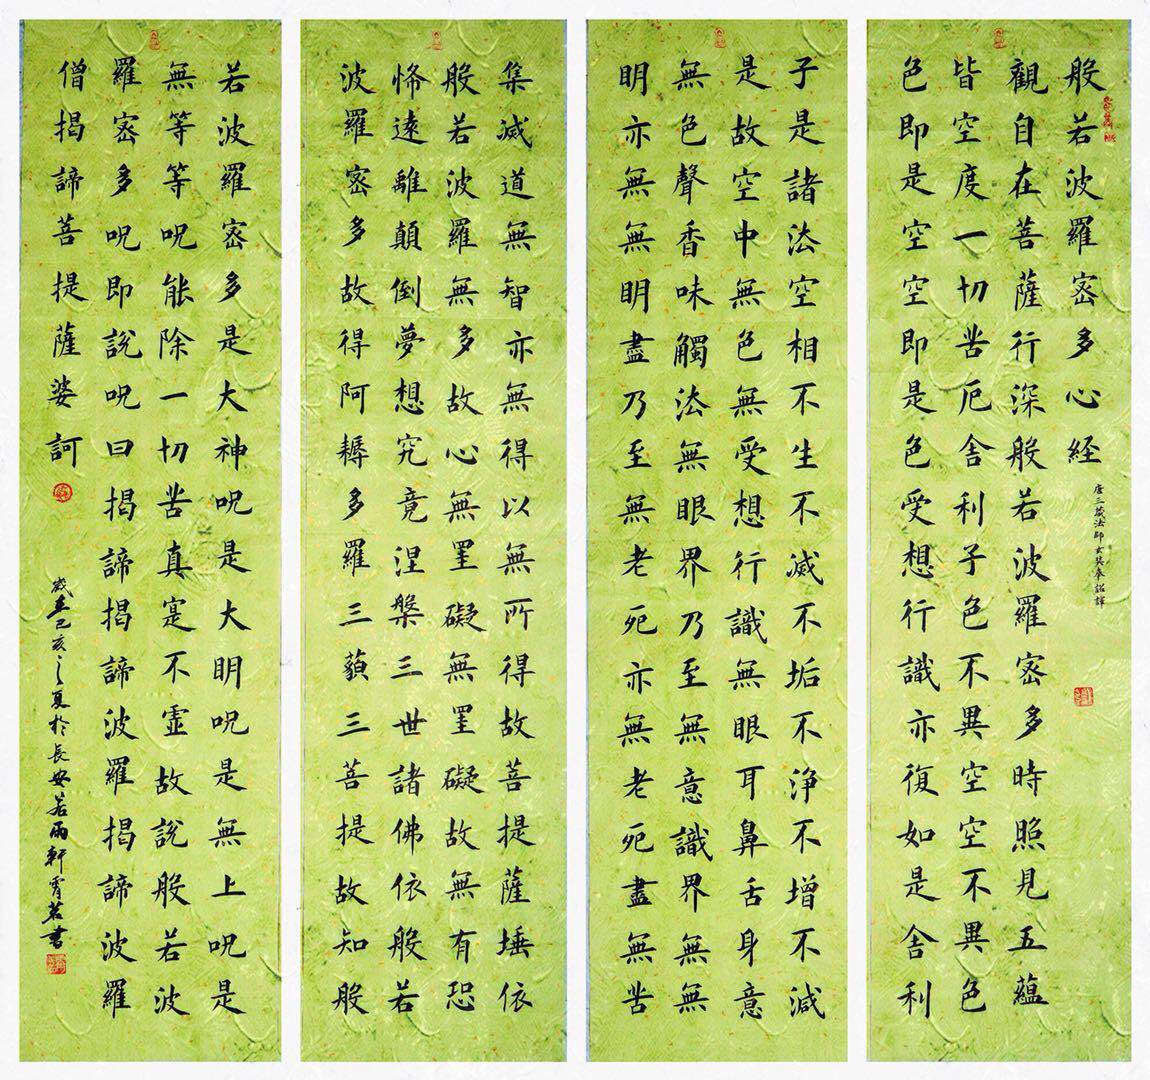 般若波羅密多心経
唐三藏法師玄奘奉詔譯
觀自在菩薩行深般若波羅密多時照見五蘊
皆空度一切苦厄舎利子色不異空空不異色
色即是空空即是色受想行識亦復如是舎利
子是諸法空相不生不滅不垢不浄不增不減
是故空中無色無受想行識無眼耳鼻舌身意
無色聲香味觸法無眼界乃至無意識界無無
明亦無無明盡乃至無老死亦無老死盡無苦
集滅道無智亦無得以無所得故菩提薩埵依
般若波羅無多故心無罣礙無罣礙故無有恐
悕遠離顛倒夢想究竟涅槃三世諸佛依般若
波羅密多故得阿耨多羅三藐三菩提故知般
若波羅密多是大神呪是大明呪是無上呪是
無等等呪能除一切苦真寔不虛故說般若波
羅密多呪即說呪曰揭諦揭諦波羅揭諦波羅
僧揭諦菩提薩婆訶
歲在己亥之夏於長安若雨軒霄茗書